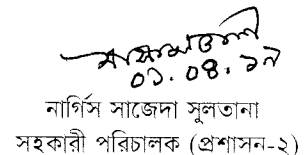 ০১.০৪.১৯
নার্গিস সাজেদা সুলতানা
সহকারী পরিচালক (প্রশাসন-২)